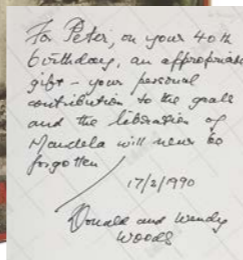 For Peter, on your 40th
birthday, an appropriate
gift – your personal
contribution to the goals
and the liberation of
Mandela will never be
forgotten
17/2/990
Donald and Wendy
Woods